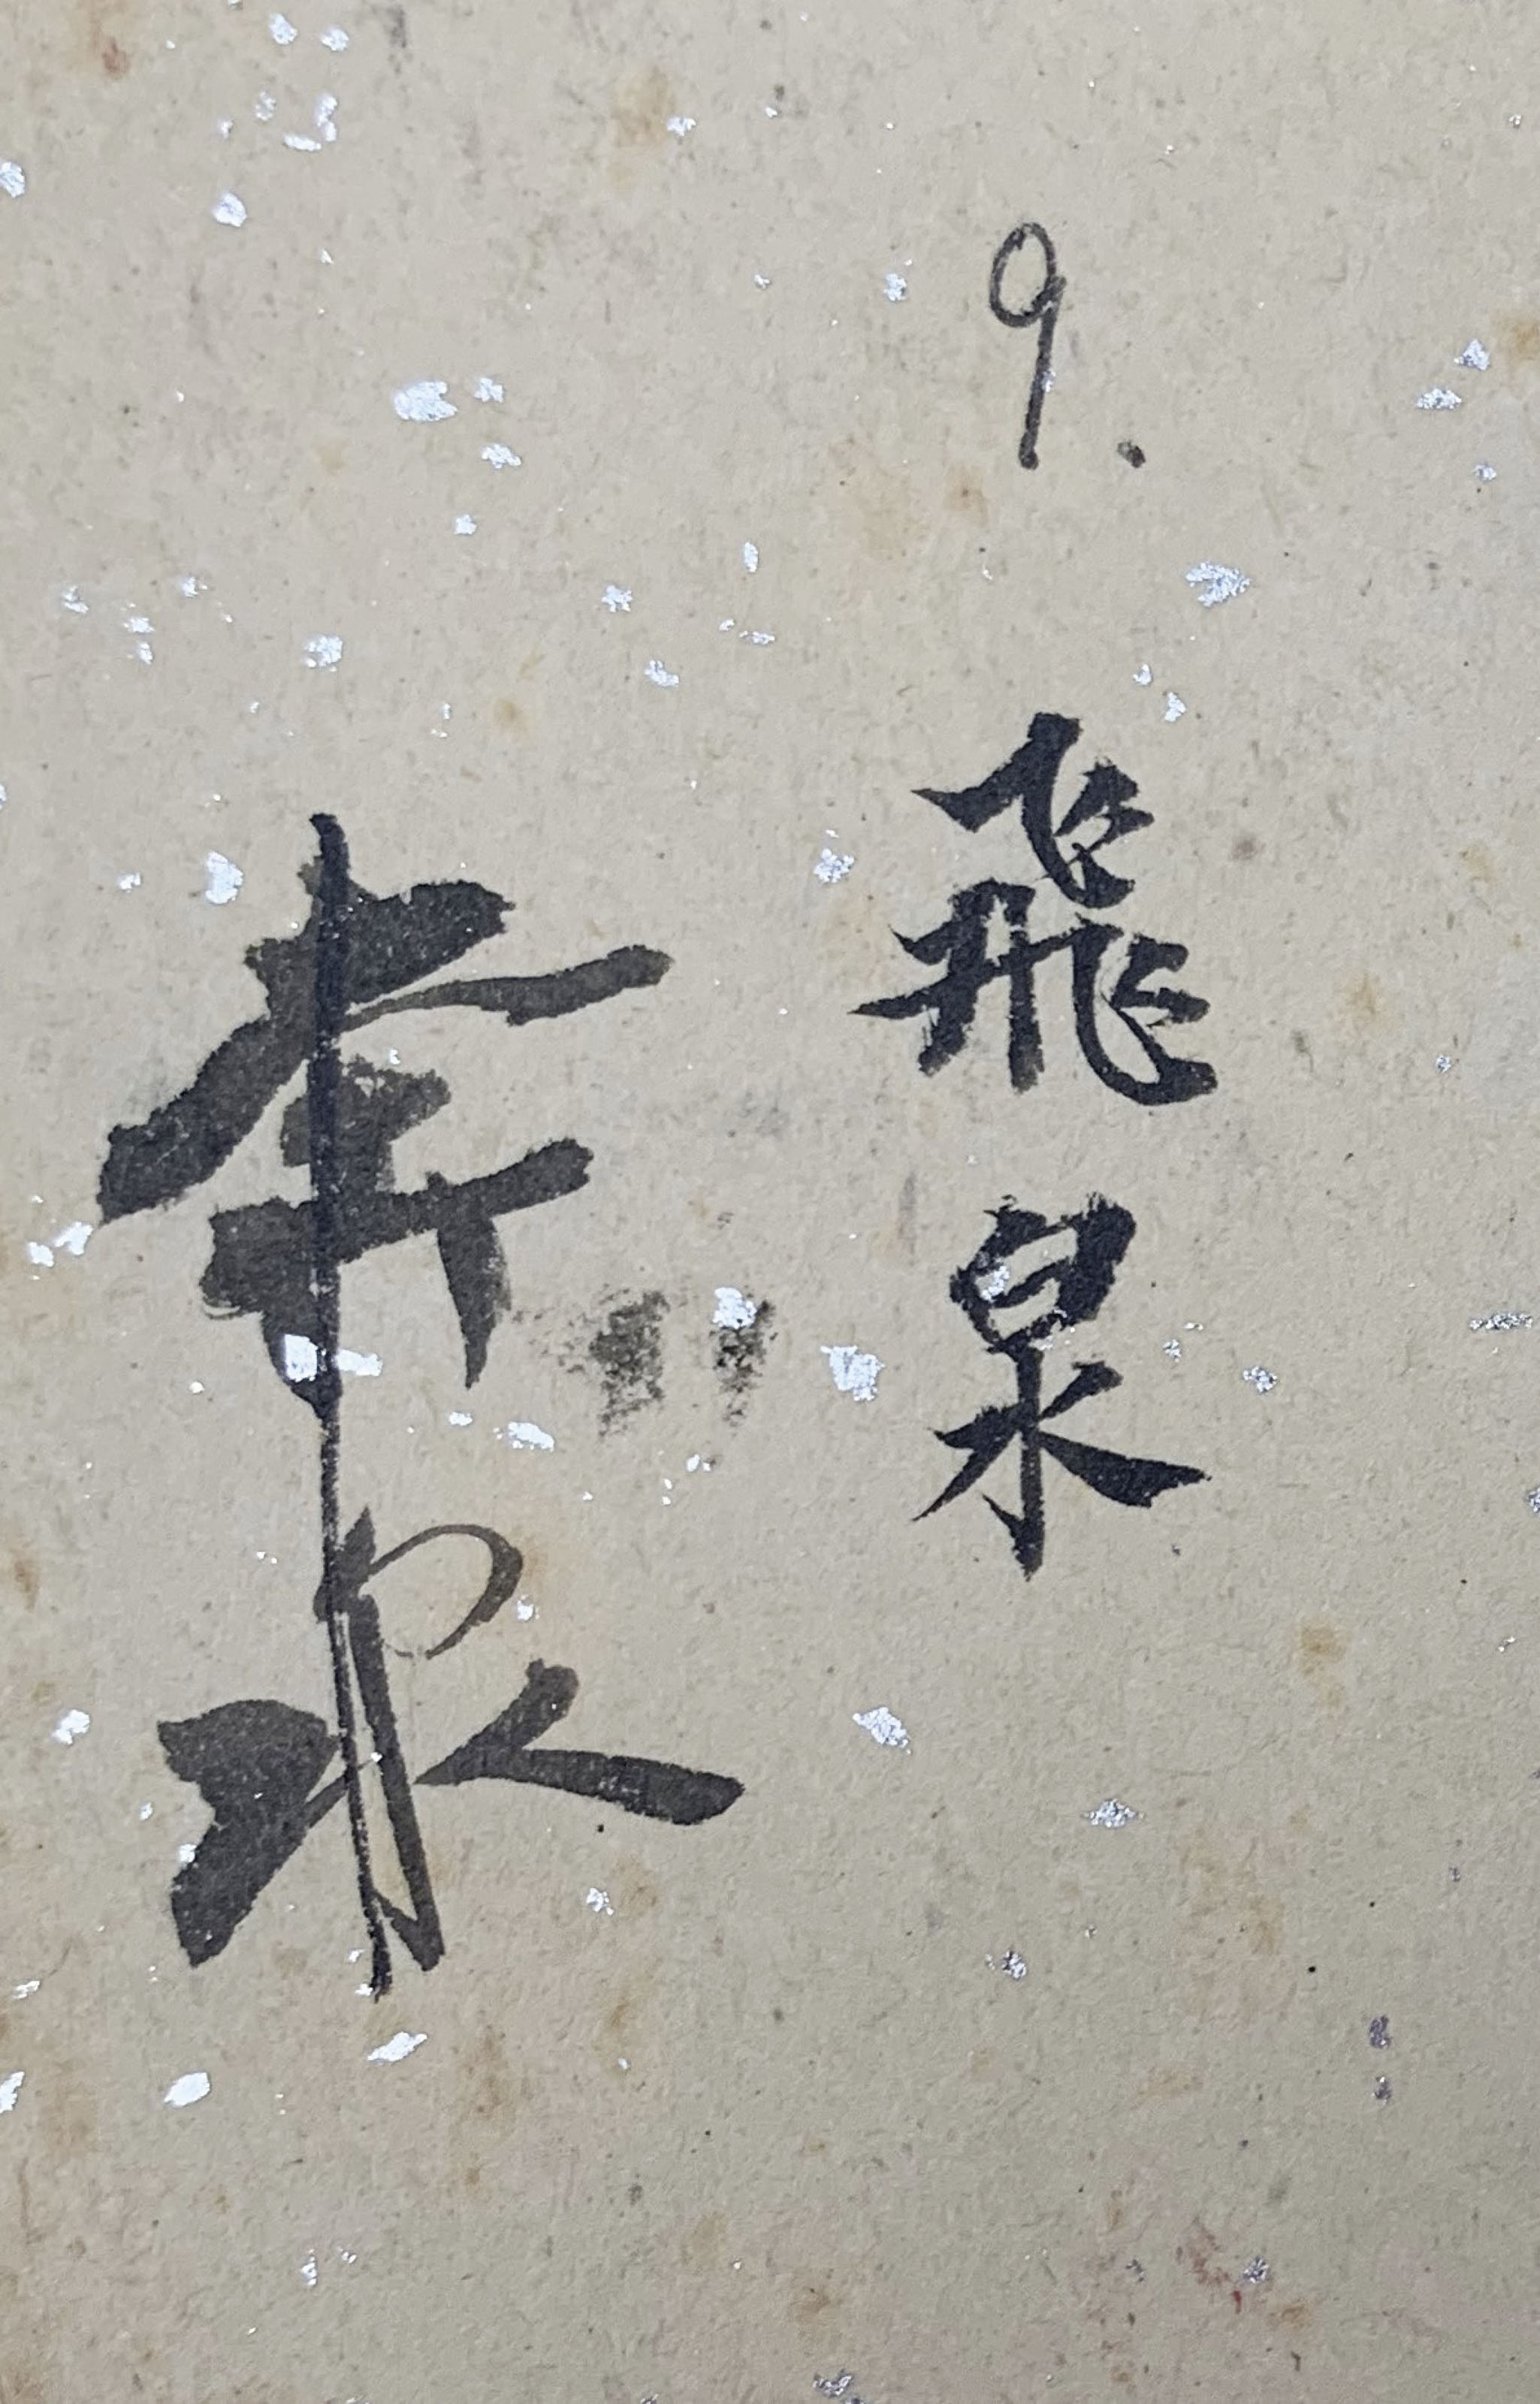 9.
飛泉
奔泉